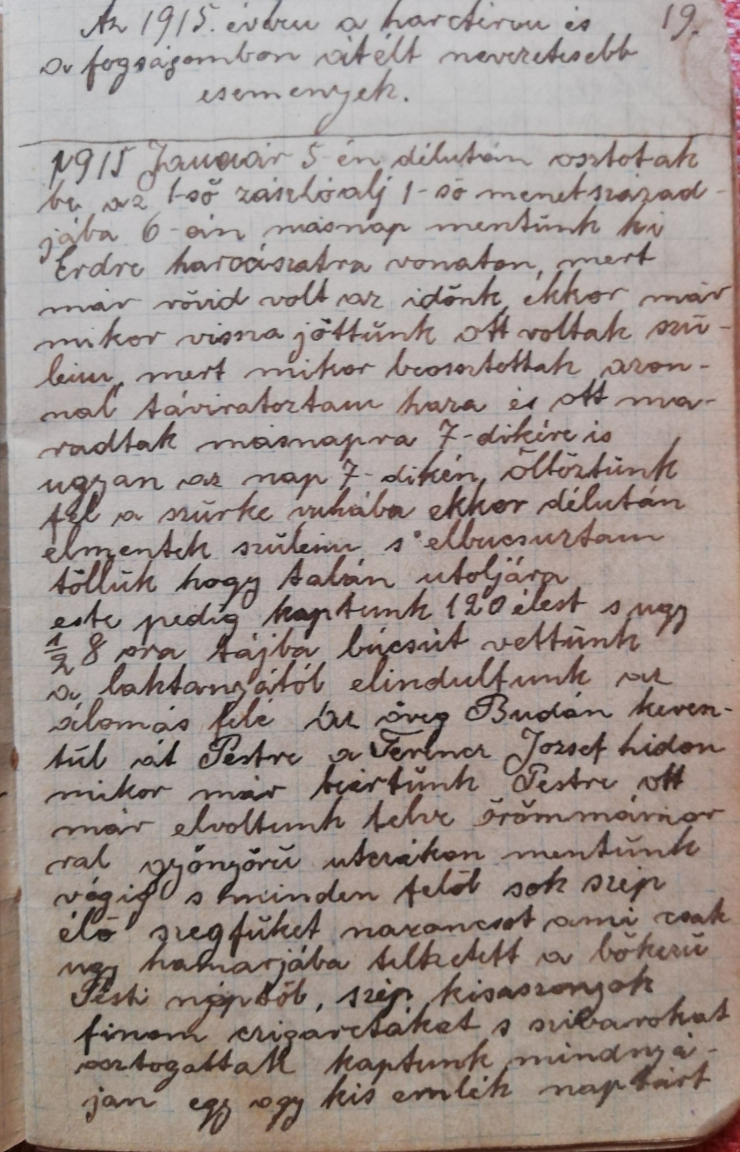 Az 1915. évben a harctéren és 19.
a fogságomban átélt nevezetesebb
esemenyek.
1915 Január 5-én délután osztotak
be az 1-ső zászlóalj 1-ső menetszázad-
jába 6-án másnap mentünk ki
Erdre harcászatra vonaton, mert
már rövid volt az időnk, ekkor már
mikor vissza jöttünk ott voltak szü-
leim, mert mikor beosztottak azon-
nal táviratoztam haza és ott ma-
radtak másnapra 7-dikére is
ugyan az nap 7-dikén, öltöztünk
fel a szürke ruhába ekkor délután
elmentek szüleim s elbucsuztam
töllük hogy talán utoljára
este pedig kaptunk 120 élest s ugy
1/2 8 ora tájba búcsút vettünk
a laktanyától elindultunk az
álomás felé az öreg Budán keresz-
tül át Pestre a Ferencz Jozsef hidon
mikor már beértünk Pestre ott
már elvoltunk telve örömmámor
ral gyönyörü utczákon mentünk
végig s minden felöl sok szép
élö szegfüket narancsot ami csak
ugy hamarjába telhetett a bökezü
Pesti néptöl, szép kisaszonyok
finom czigarettákat s szivarokat
osztogattak kaptunk mindnyá-
jan egy egy kis emlék naptárt